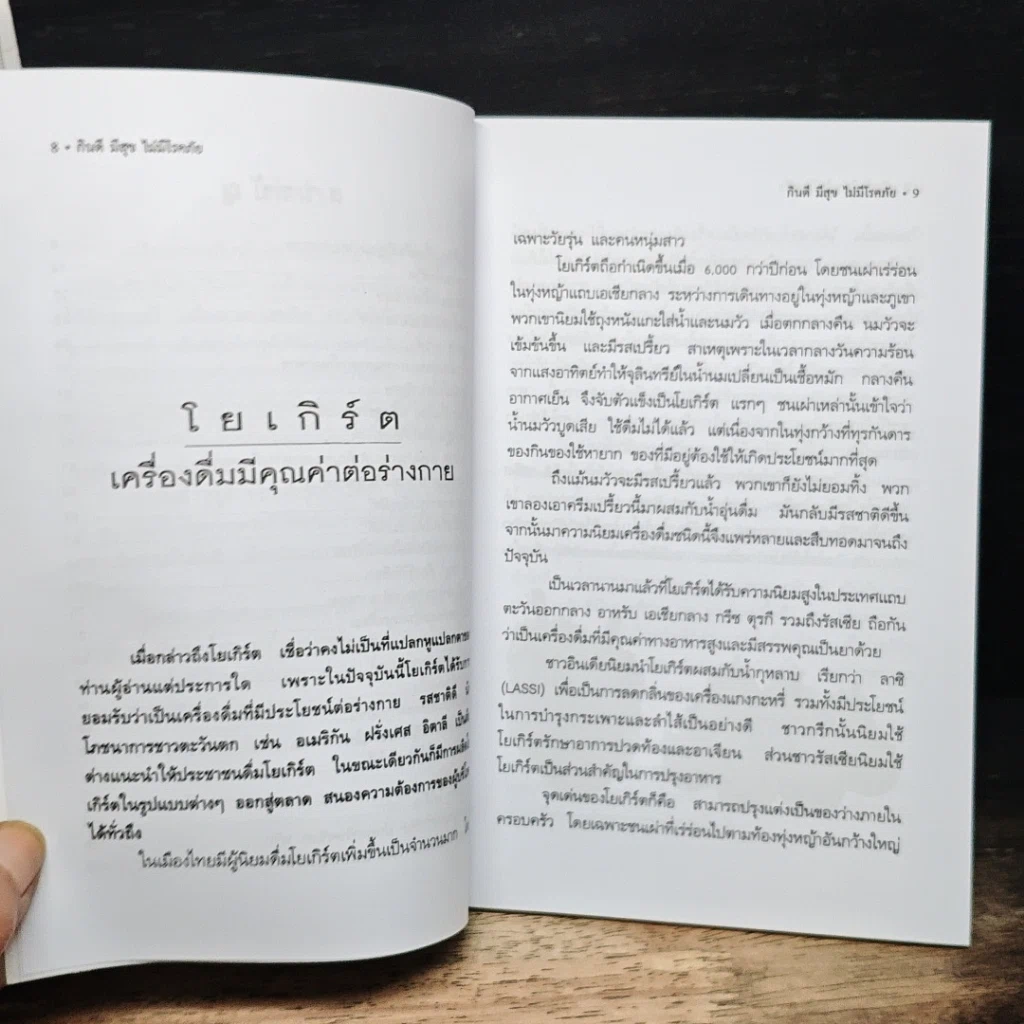 8 • กินดี มีสุข ไม่มีโรคภัย
โยเกิร์ต
เครื่องดื่มมีคุณค่าต่อร่างกาย
เมื่อกล่าวถึงโยเกิร์ต เชื่อว่าคงไม่เป็นที่แปลกหูแปลกตาของ
ท่านผู้อ่านแต่ประการใด เพราะในปัจจุบันนี้โยเกิร์ตได้รับการ
ยอมรับว่าเป็นเครื่องดื่มที่มีประโยชน์ต่อร่างกาย รสชาติดี
โภชนาการชาวตะวันตก เช่น อเมริกัน ฝรั่งเศส อิตาลี
ต่างแนะนำให้ประชาชนดื่มโยเกิร์ต ในขณะเดียวกันก็มีการ
เกิร์ตในรูปแบบต่างๆ ออกสู่ตลาด สนองความต้องการของ
ได้ทั่วถึง
ในเมืองไทยมีผู้นิยมดื่มโยเกิร์ตเพิ่มขึ้นเป็นจำนวนมาก
กินดี มีสุข ไม่มีโรคภัย • 9
เฉพาะวัยรุ่น และคนหนุ่มสาว
โยเกิร์ตถือกำเนิดขึ้นเมื่อ 6,000 กว่าปีก่อน โดยชนเผ่าเร่ร่อน
ในทุ่งหญ้าแถบเอเชียกลาง ระหว่างการเดินทางอยู่ในทุ่งหญ้าและภูเขา
พวกเขานิยมใช้ถุงหนังแกะใส่น้ำและนมวัว เมื่อตกกลางคืน นมวัวจะ
เข้มข้นขึ้น และมีรสเปรี้ยว สาเหตุเพราะในเวลากลางวันความร้อน
จากแสงอาทิตย์ทำให้จุลินทรีย์ในน้ำนมเปลี่ยนเป็นเชื้อหมัก กลางคืน
อากาศเย็น จึงจับตัวแข็งเป็นโยเกิร์ต แรกๆ ชนเผ่าเหล่านั้นเข้าใจว่า
น้ำนมวัวบูดเสีย ใช้ดื่มไม่ได้แล้ว แต่เนื่องจากในทุ่งกว้างที่ทุรกันดาร
ของกินของใช้หายาก ของที่มีอยู่ต้องใช้ให้เกิดประโยชน์มากที่สุด
ถึงแม้นมวัวจะมีรสเปรี้ยวแล้ว พวกเขาก็ยังไม่ยอมทิ้ง พวก
เขาลองเอาครีมเปรี้ยวนี้มาผสมกับน้ำอุ่นดื่ม มันกลับมีรสชาติดีขึ้น
จากนั้นมาความนิยมเครื่องดื่มชนิดนี้จึงแพร่หลายและสืบทอดมาจนถึง
ปัจจุบัน
เป็นเวลานานมาแล้วที่โยเกิร์ตได้รับความนิยมสูงในประเทศแถบ
ตะวันออกกลาง อาหรับ เอเชียกลาง กรีซ ตุรกี รวมถึงรัสเซีย ถือกัน
ว่าเป็นเครื่องดื่มที่มีคุณค่าทางอาหารสูงและมีสรรพคุณเป็นยาด้วย
ชาวอินเดียนิยมนำโยเกิร์ตผสมกับน้ำกุหลาบ เรียกว่า ลาซิ
(LASSI) เพื่อเป็นการลดกลิ่นของเครื่องแกงกะหรี่ รวมทั้งมีประโยชน์
ในการบำรุงกระเพาะและลำไส้เป็นอย่างดี ชาวกรีกนั้นนิยมใช้
โยเกิร์ตรักษาอาการปวดท้องและอาเจียน ส่วนชาวรัสเซียนิยมใช้
โยเกิร์ตเป็นส่วนสำคัญในการปรุงอาหาร
จุดเด่นของโยเกิร์ตก็คือ สามารถปรุงแต่งเป็นของว่างภายใน
ครอบครัว โดยเฉพาะชนเผ่าที่เร่ร่อนไปตามท้องทุ่งหญ้าอันกว้างใหญ่